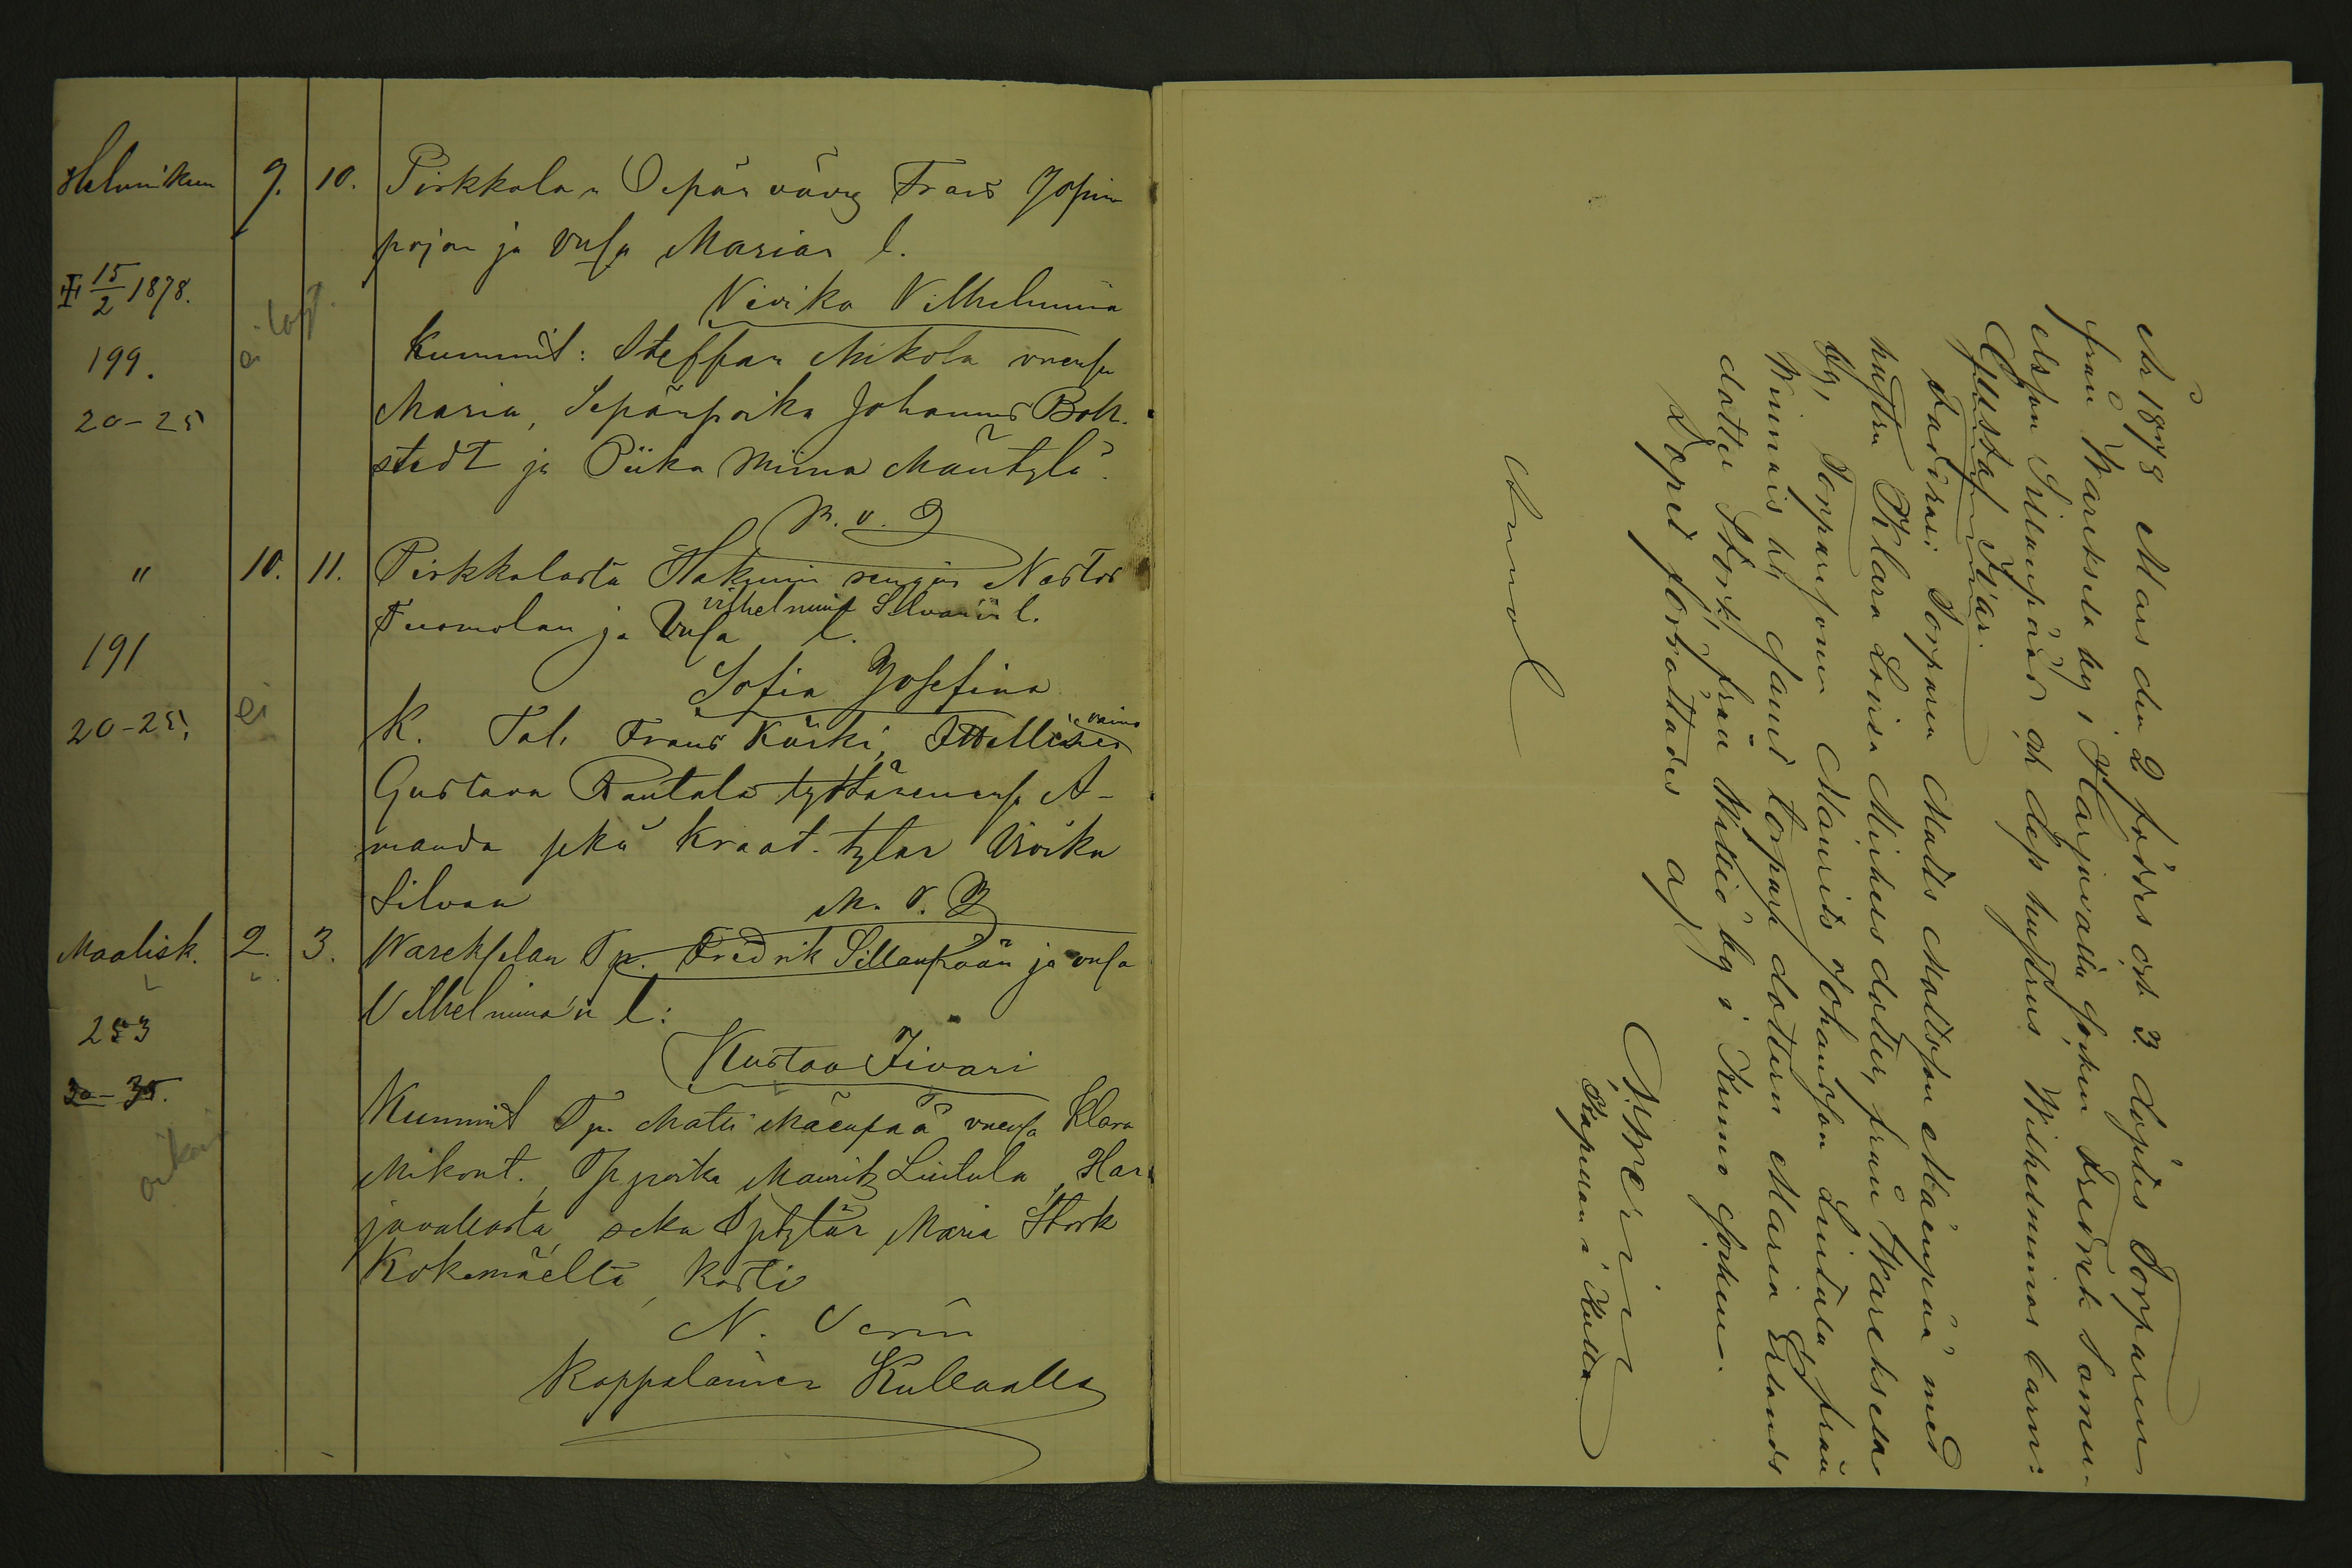 Helmikuu 9. 10. Pirkkolan Sepän vävy Frans Josun
pojan ja vsa Marian l.
╬ 15/2 1878. Vivika Vilhelmina
199. ei Kummit: Steffan Mikola vmsa
20-25 Maria, Sepänpoika Johannes Bok-
stedt ja Piika Miina Mäntylä.
N. V.
" 10. 11. Pirkkalasta Hakuin rengin Nestor
Vilhelmina Silvanin l.
Tuomolan ja Vsa l.
191 Sofia Josefina
20-25, ei K. Tal. Frans Kärki, Itellisen vaimo
Gustava Rantala tyttärensä A-
manda sekä Kraat. tytär Vivika
Silvan N. V.
Maalisk. 2. 3. Varekselan Tp. Fredrik Sillanpään ja vsa
Vilhelmina'n l:
253 Kustaa Iivari
30-35. Kummit Tp. Matti Mäenpää vmsa Klara
Mikont., Tp poika Mauritz Liutula, Har-
javallasta, sekä Tp tytär Maria Stork
Kokemäeltä, kasti
N. Verin
Kappalainen Kullaalla
År 1878 Mars den 2 föddes och 3 döptes Torparen
från Wareksela by i Harjavalta socken Fredrik Samu-
elsson Sillanpääs och dess hustrus Wilhelminas barn:
Gustaf Ivar.
Faddrar: Torparen Matts Mattsson Mäenpää med
hustru Klara Lovisa Michels dotter, från Wareksela
by, Torparesonen Maurits Johansson Liutula från
Winnais by, samt torpare dottern Maria Erlands
dotter Stork, från Wittiö by i Kumo socken.
Dopet förrättades af
N. Werin
Kapellan i Kulla